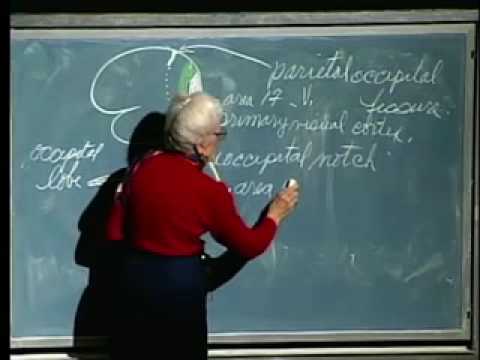 parietaloccipital
fissure.
area 17 - V1
primary visual cortex,
occipital notch
occipital
lobe
area